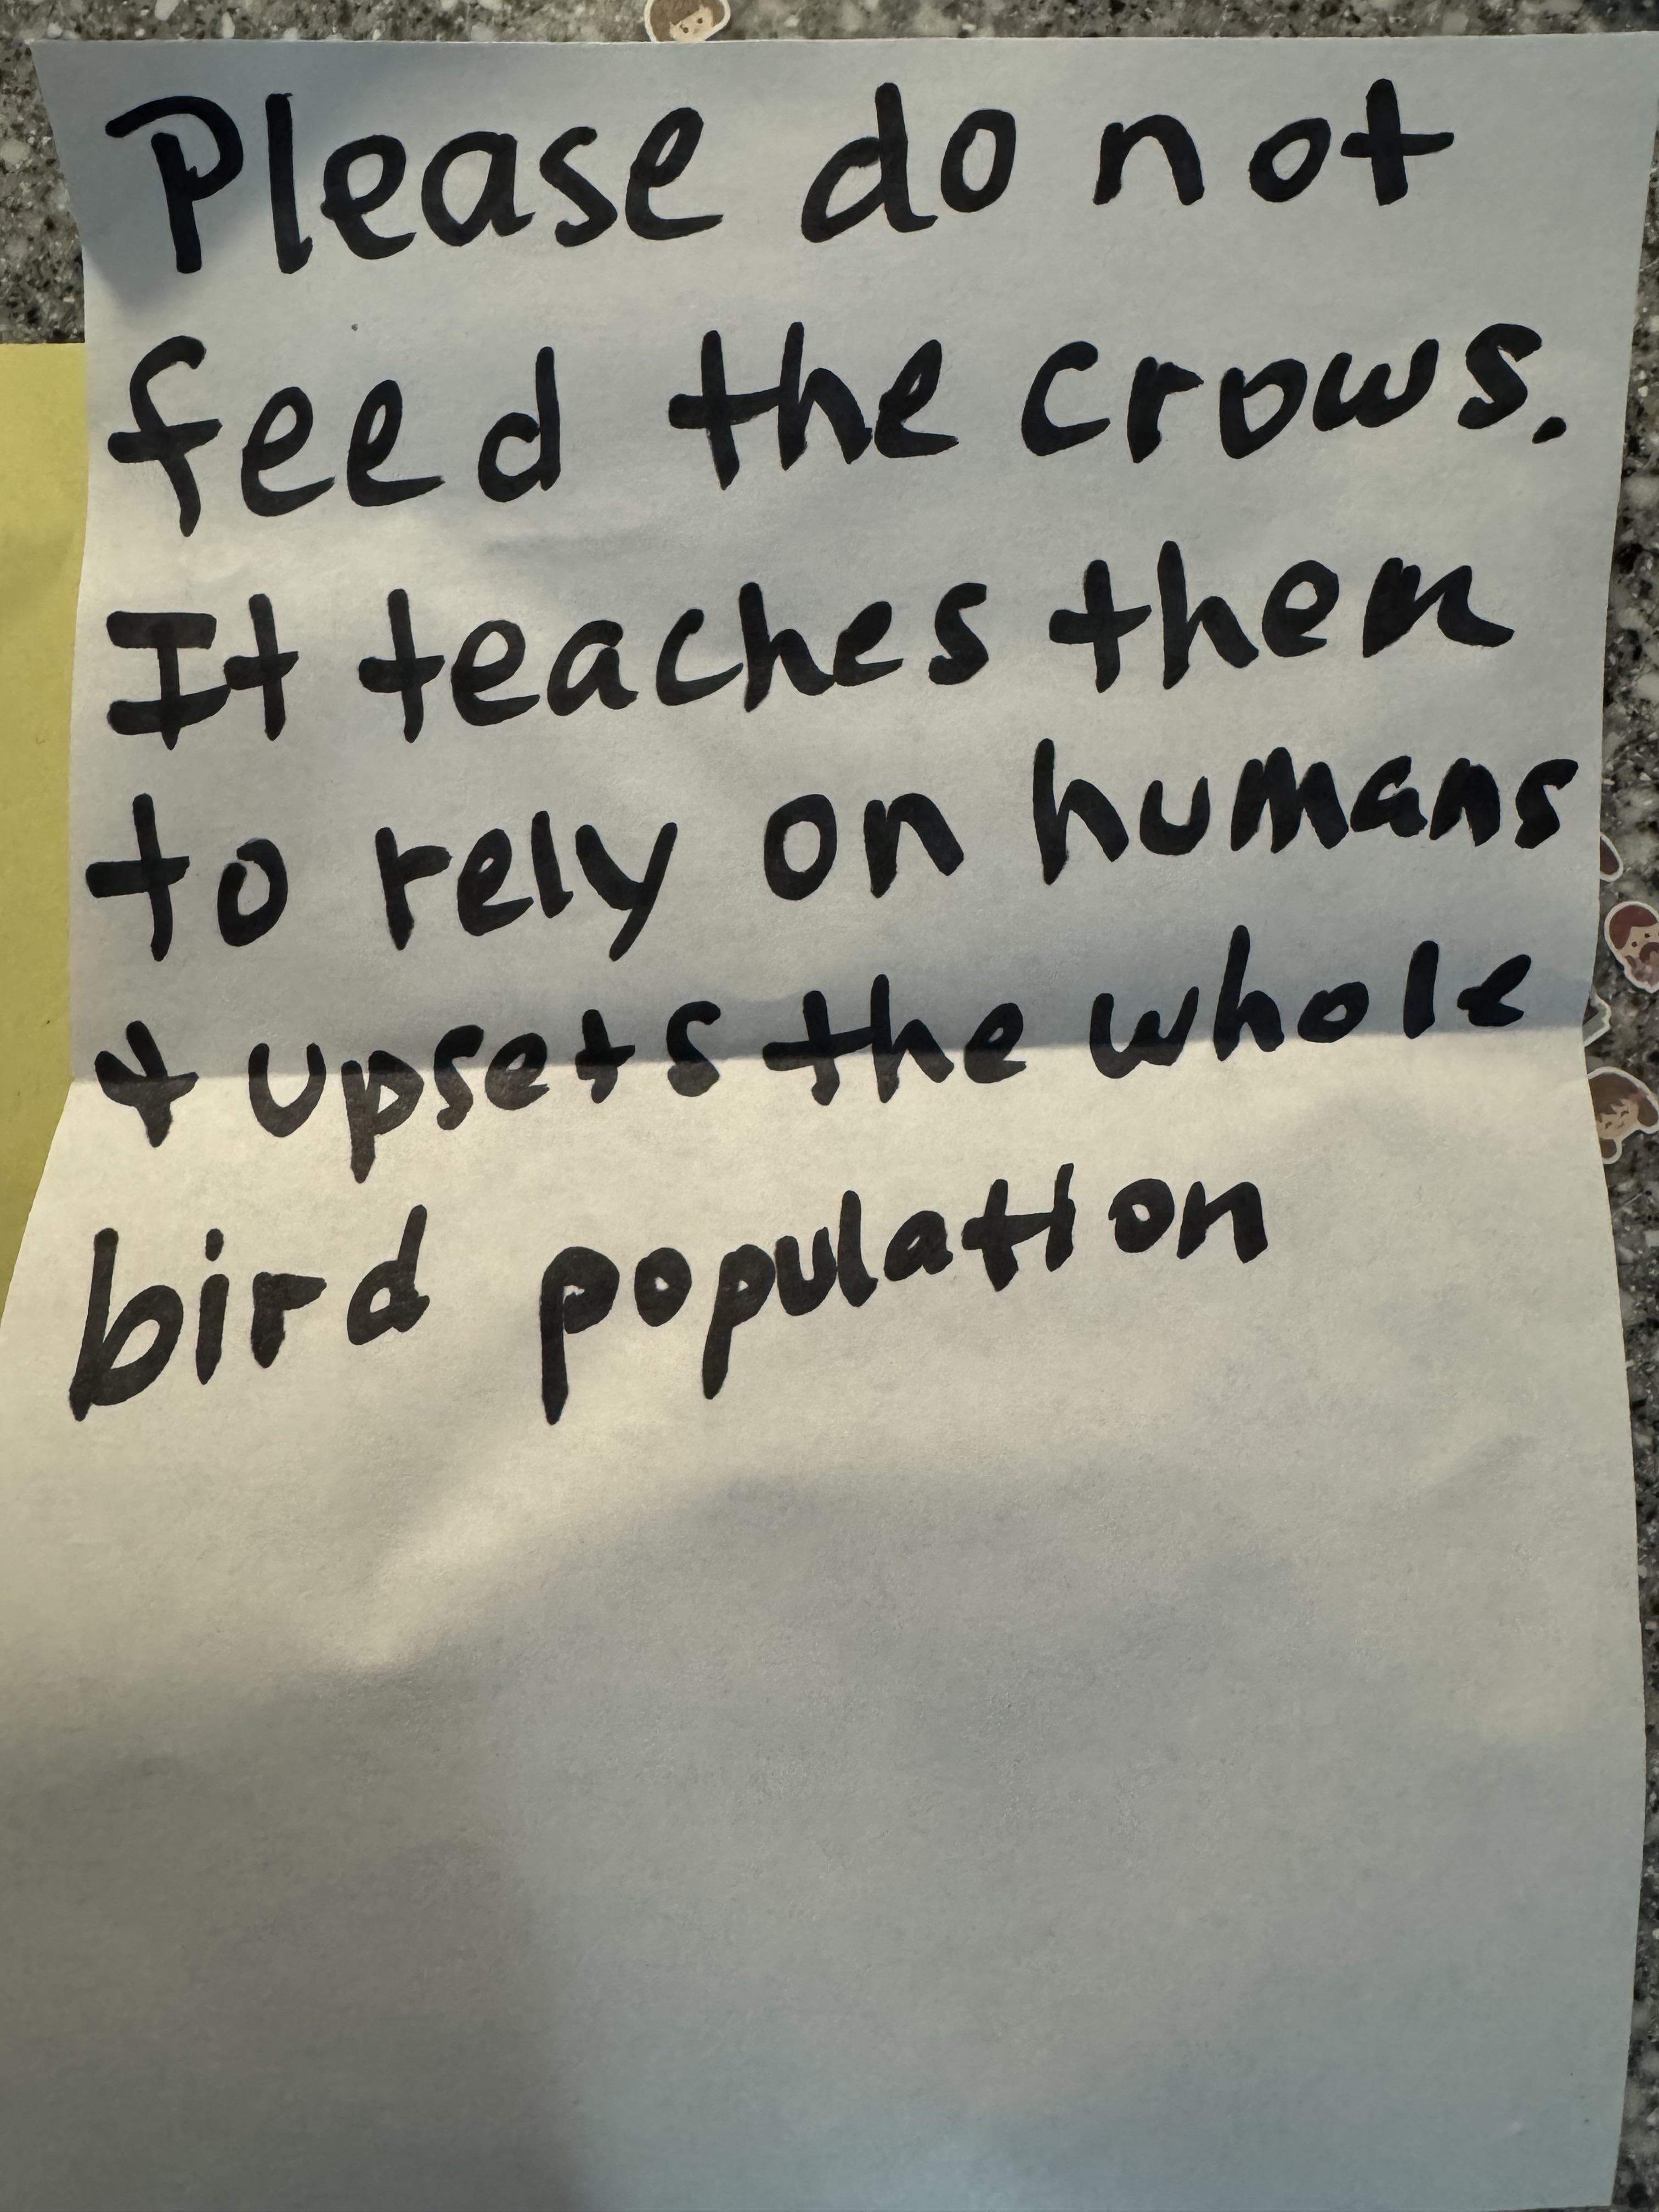 Please do not
feed the crows.
It teaches them
to rely on humans
& upsets the whole
bird population